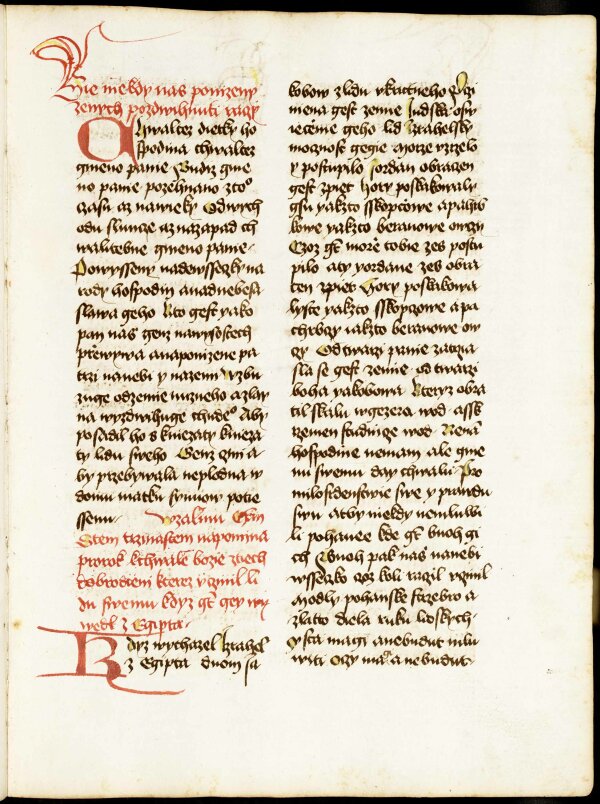 Nie niekdy nas ponizeny
zenych pozdwihnuti raczy
Chwaltez dietky ho
spodina chwaltez
gmeno panie Budiz gme
no panie pozehnano zto⁹
czasu az nawieky Odwych
odu sluncze az nazapad ch
walitebne gmeno panie
Powysseny nadewsseczky na
rody hospodin anadnebesa
slawa geho Kto gest yako
pan nas genz nawysostech
przewywa anaponizene pa
trzi nanebi y nazemi Wzbu
zuge odzemie nuzneho azlay
na wyzdwihuge chude⁰ Aby
posadil ho s kniezaty knieza
ty lidu sweho Genz czini a
by przebywala neplodna w
domu matku synuow potie
ssenu
Wzalmu
Stem trzinastem napomina
prorok kchwale bozie ztiech
dobrodieni kterez vczinil li
du swemu kdyz gt gey wy
wedl z Egipta
Kdyz wychazel Izrahel
z Egipta duom ja
kobow zlidu vkrutneho
miena gest zemie Iudska osw
ieczenie geho lid Izrahelsky
moznost gegie Morze vzrzelo
y postupilo Jordan obraczen
gest zpiet Hory poskakowaly
gsu yakzto sskopczowe apahrb
kowe yakzto beranowe owczy
Czoz gt morze tobie zes postu
pilo aty yordane zes obra
czen zpiet Hory poskakowa
lyste yakzto sskopczowe a pa
chrbky yakzto beranowe ow
czy Od twarzi panie zatrzia
sla se gest zemie od twarzi
boha yakobowa Kteryz obra
til skalu wgezera wod assk
rzemen studnicze wod Nena
hospodine nenam ale gme
nu swemu day chwalu Pro
milosrdenstwie swe y prawdu
swu atby niekdy nemluwi
li pohanee kde gt buoh gi
ch Abuoh pak nas nanebi
wsseczko czoz koli raczil vczinil
Modly pohanske strziebro a
zlatto diela ruku lidskych
Vsta magi anebudut mlu
witi Oczy mai a nebudut